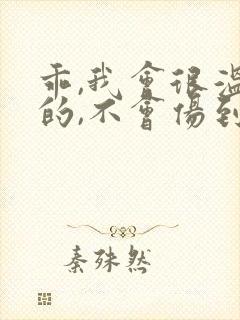 乖,我會很溫
的,不會傷到
秦殊然